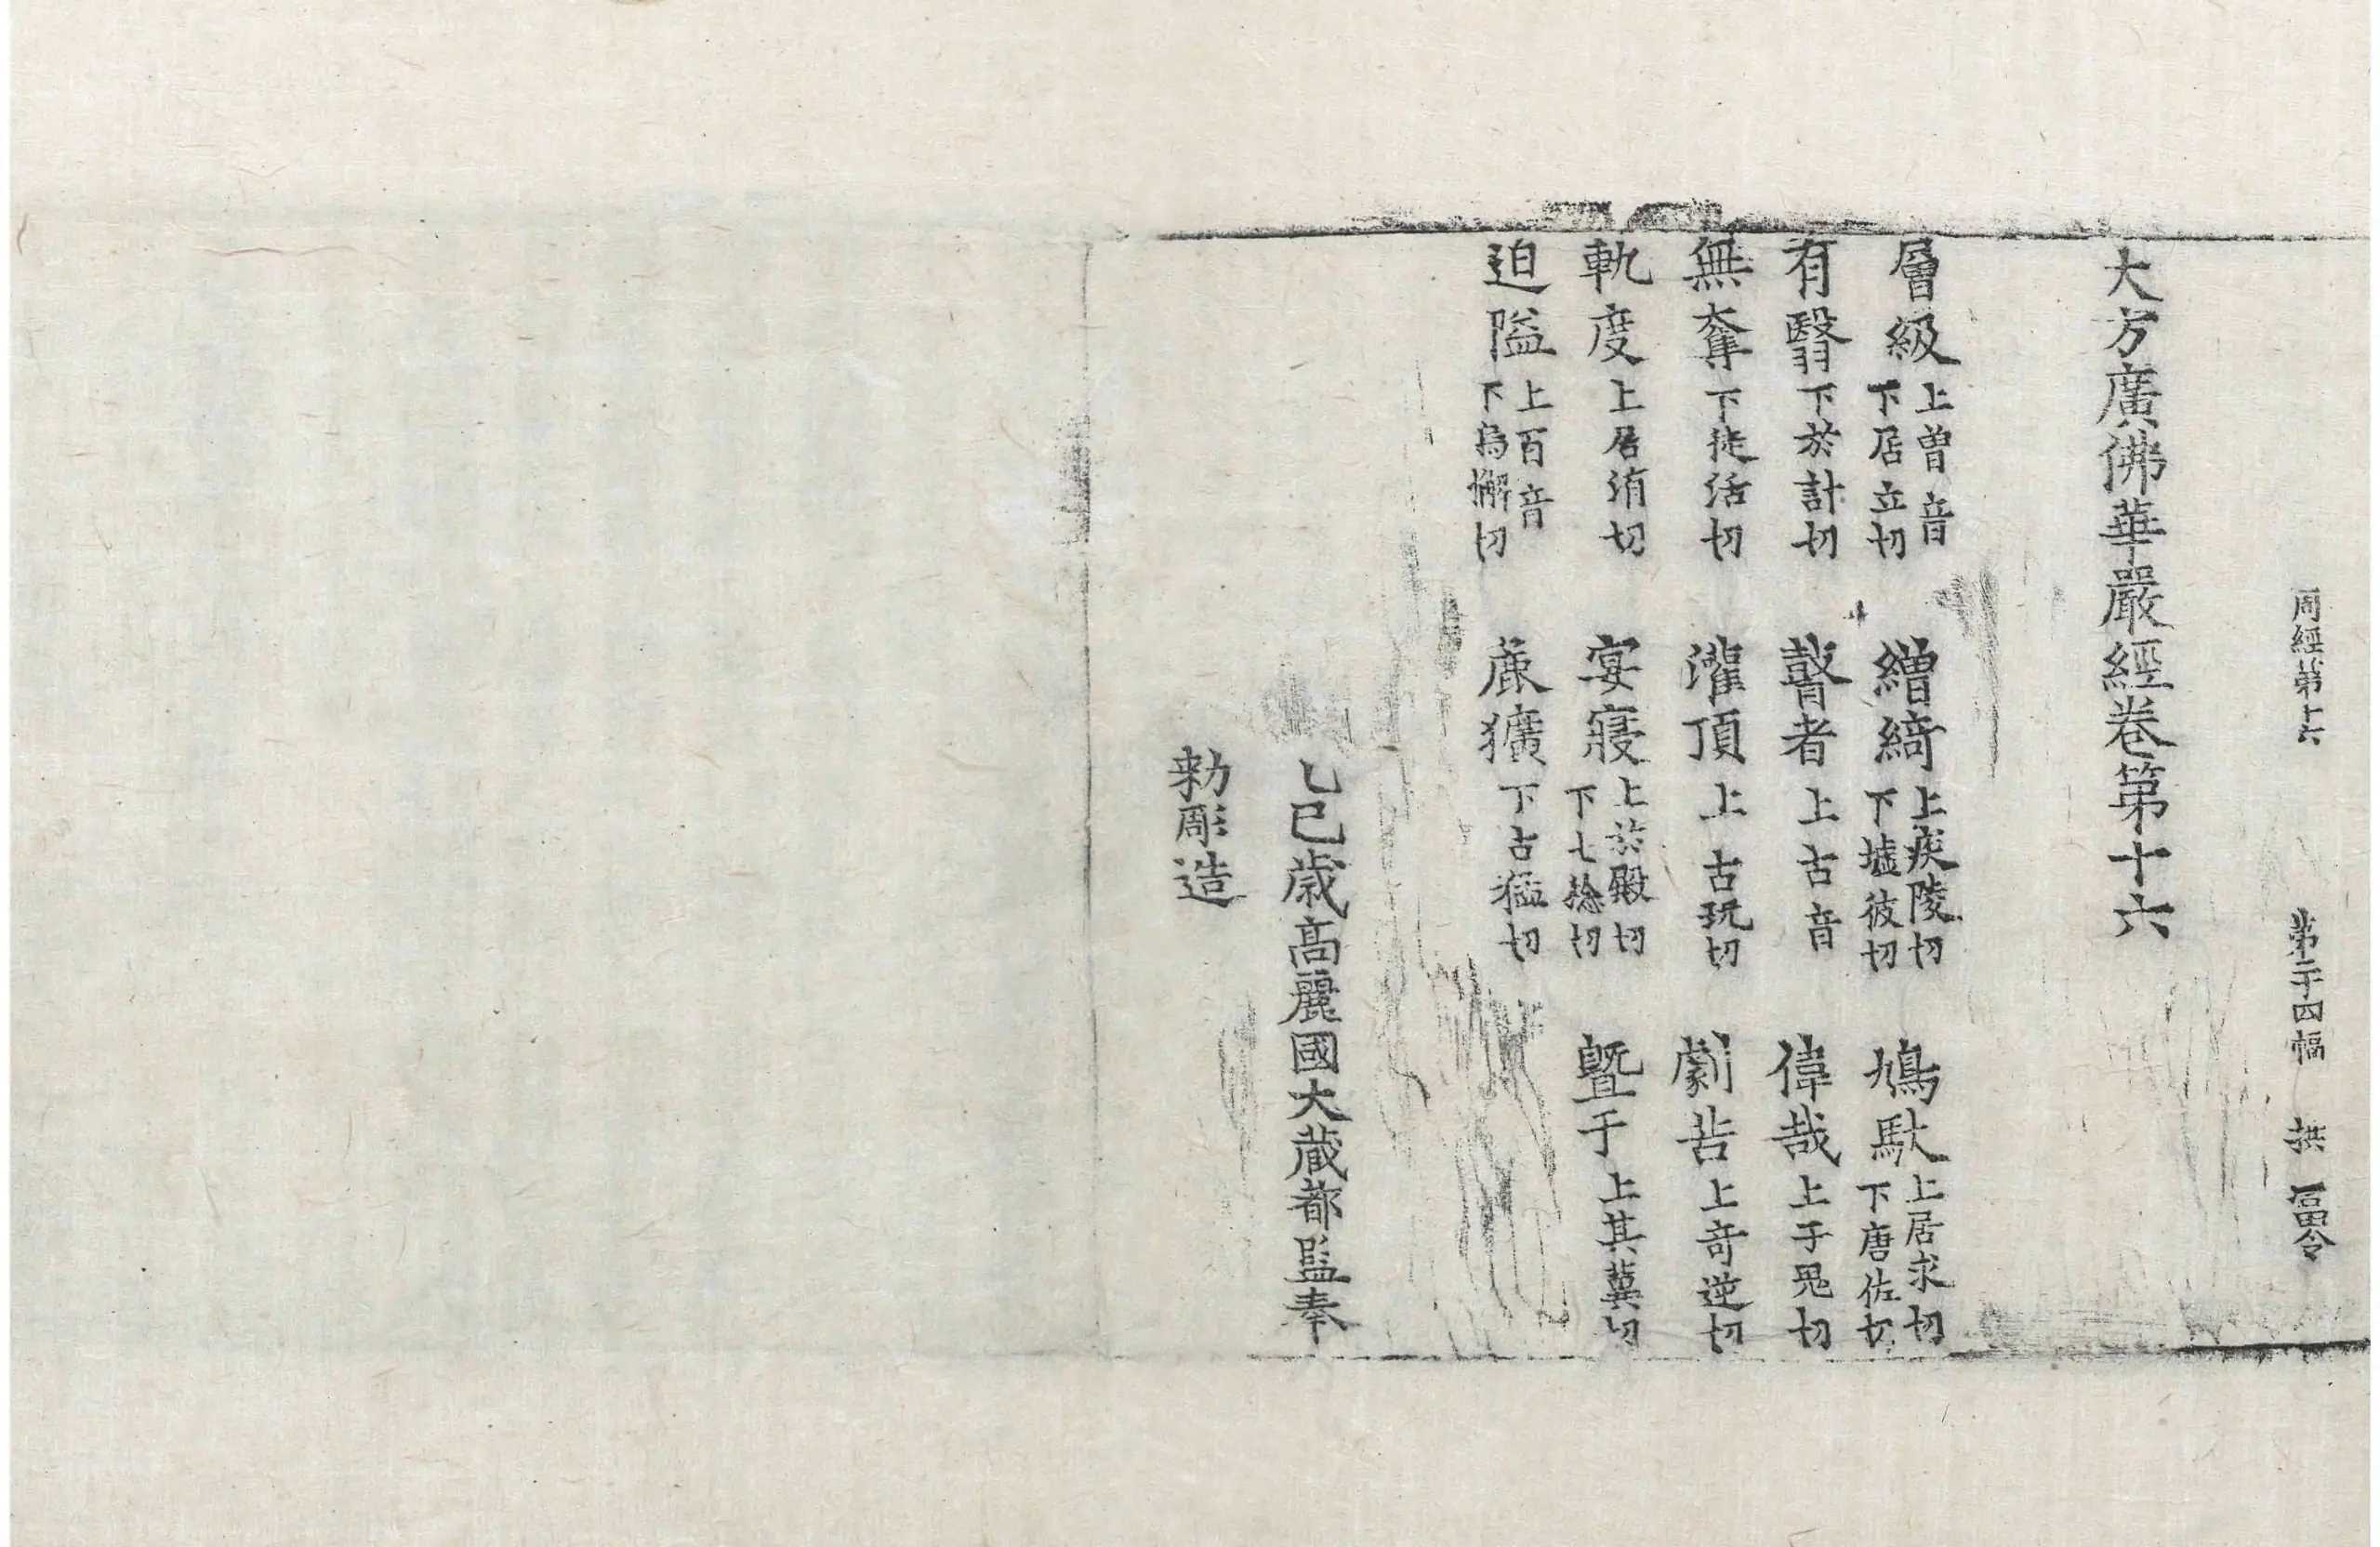 周經第十六 第二十四幅 拱 富令
大方廣佛華嚴經卷第十六
層級 上曽音 下居立切 繒綺 上疾陵切 下墟彼切 鳩馱 上居求切 下唐佐切
有翳 下於計切 瞽者 上古音 偉哉 上于鬼切
無奪 下徒活切 灌頂 上古玩切 劇苦 上竒逆切
軌度 上居洧切 宴寢 上於殿切 下七稔切 曁于 上其冀切
迫隘 上百音 下烏懈切 麁獷 下古猛切
乙巳歳髙麗國大藏都監奉
勑彫造